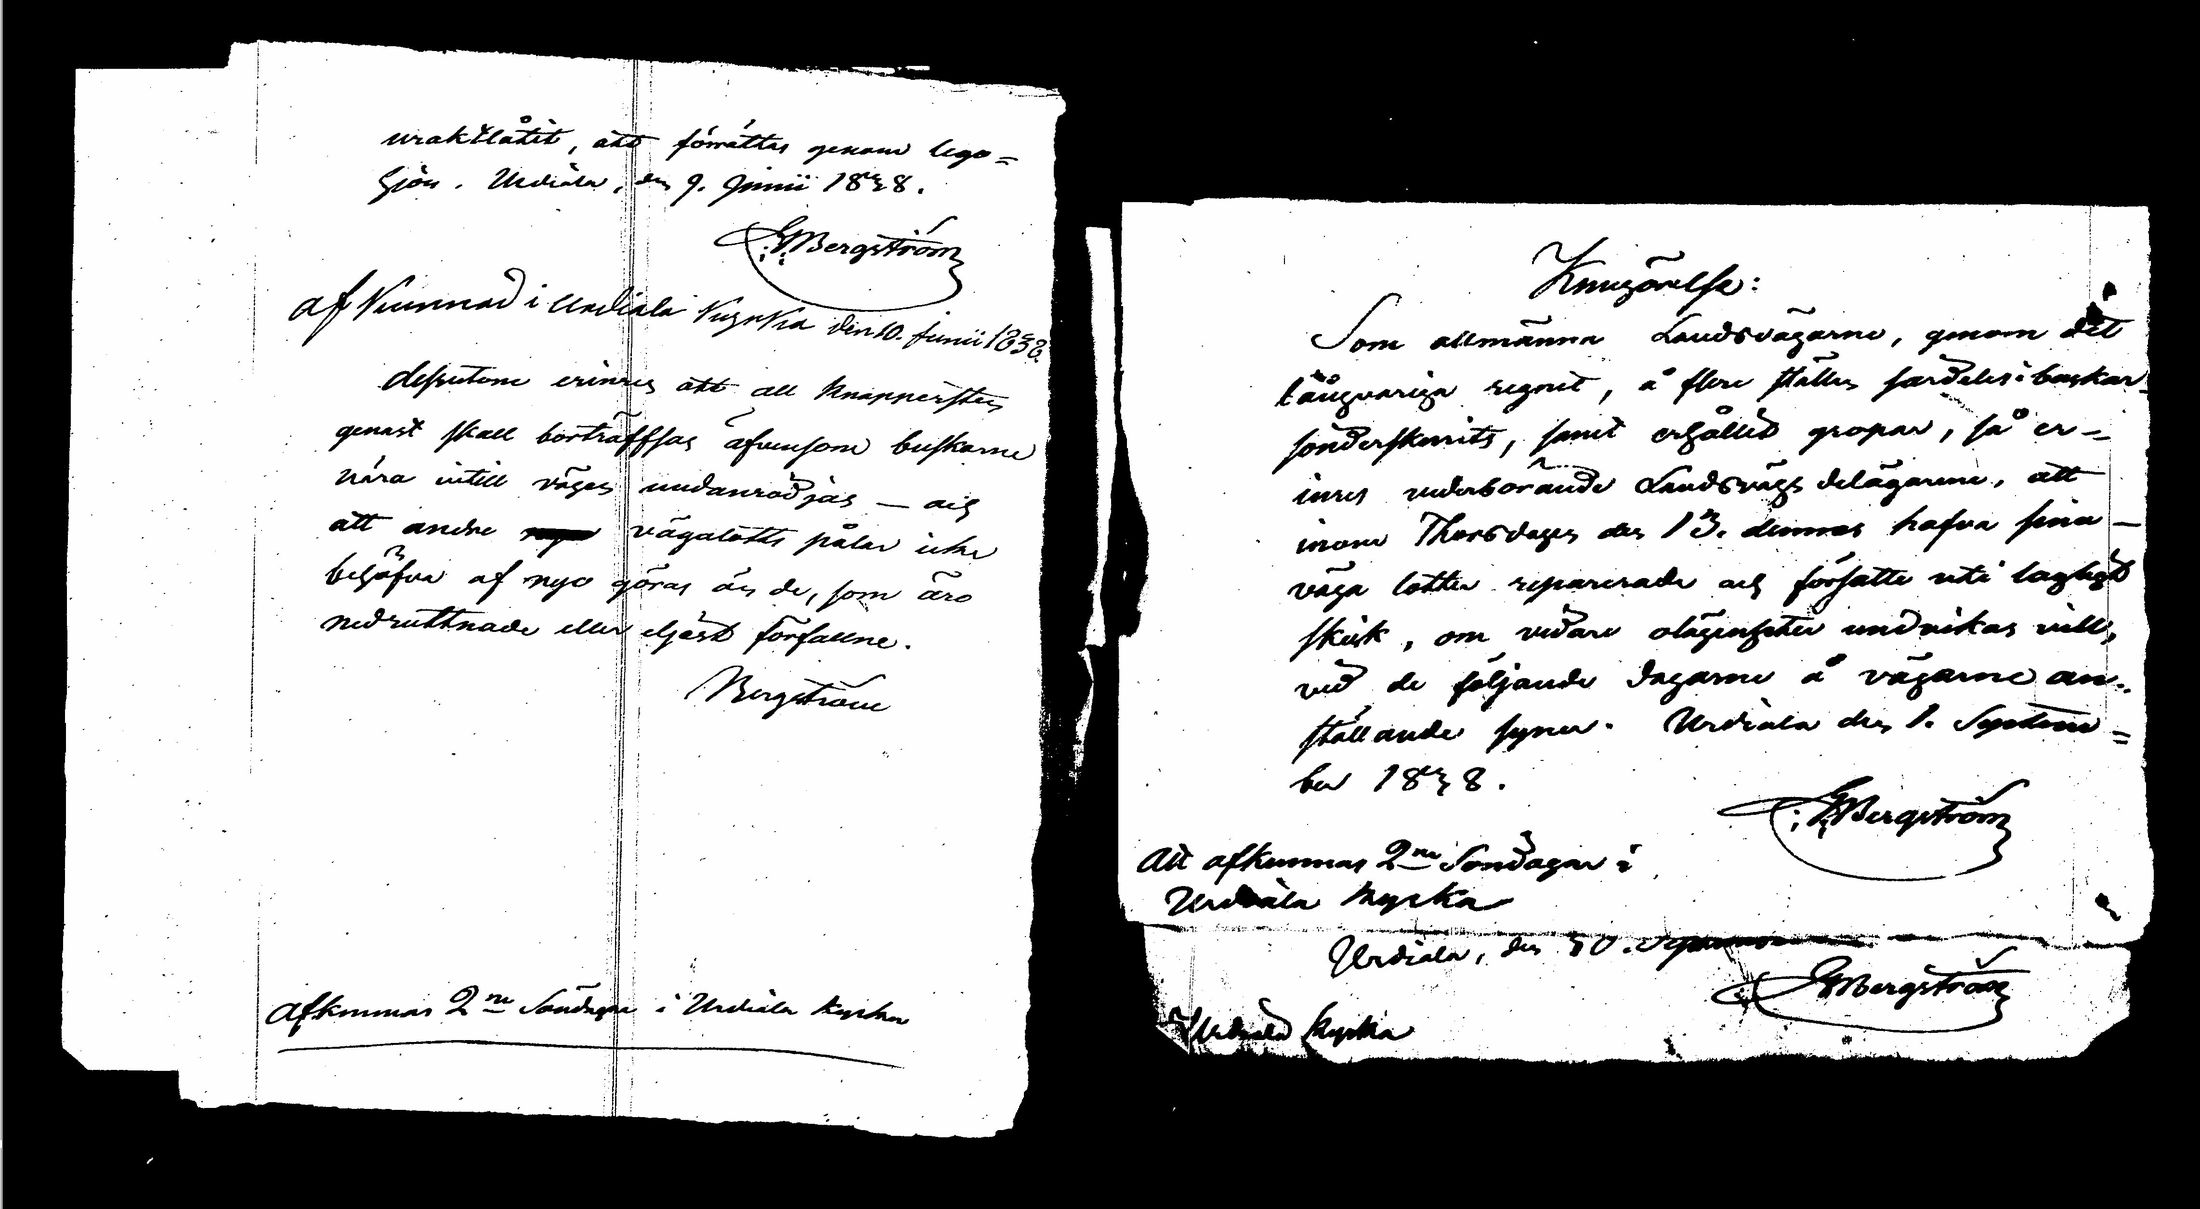 uraktlåtit, att förrättas genom lego=
hjon. Urdiala, den 9. Junii 1838.
G. Bergström
afkunnad i Urdiala Kyrka den 10. Junii 1838
dessutom erinras att all knappersten
genast skall bortraffsas äfvensom buskarne
nära intill vägen undanrödjas — och
att andre vägalotts pålar icke
behöfva af nyo göras än de, som äro
nedruttnade eller eljest förfallne.
Bergström
Afkunnas 2ne Söndagar i Urdiala kyrka
Kungörelse:
Som allmänna Landsvägarne, genom det
långvariga regnet, å flere ställen särdeles i backar
sönderskurits, samt erhållit gropar, så er=
inras vederbörande Landsvägs delägarne, att
inom Thorsdagen den 13. dennes hafva sina
väga lotter reparerade och försatte uti lagligt
skick, om vidare olägenheter undvikas vill,
vid de följande dagarne å vägarne an=
ställande syner. Urdiala den 1. Septem=
ber 1838.
G. Bergström
Att afkunnas 2ne Söndagar i
Urdiala kyrka
Urdiala, den 30.
G Bergström
Urdiala kyrka